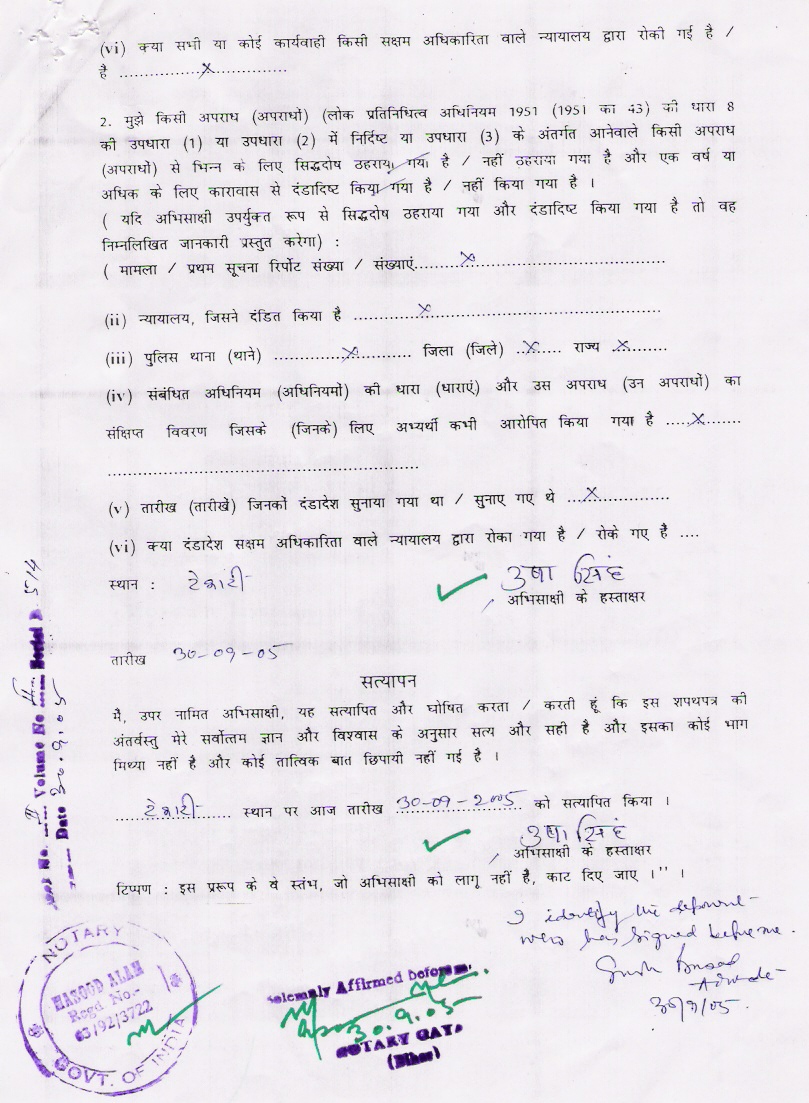 (vi) क्या सभी या कोई कार्यवाही किसी सक्षम अधिकारिता वाले न्यायालय द्वारा रोकी गई है /
है ..................X..................
2. मुझे किसी अपराध (अपराधों) (लोक प्रतिनिधित्व अधिनियम 1951 (1951 का 43) की धारा 8
की उपधारा (1) या उपधारा (2) में निर्दिष्ट या उपधारा (3) के अंतर्गत आनेवाले किसी अपराध
(अपराधों) से भिन्न के लिए सिद्धदोष ठहराया गया है / नहीं ठहराया गया है और एक वर्ष या
अधिक के लिए कारावास से दंडादिष्ट किया गया है / नहीं किया गया है ।
( यदि अभिसाक्षी उपर्युक्त रूप से सिद्धदोष ठहराया गया और दंडादिष्ट किया गया है तो वह
निम्नलिखित जानकारी प्रस्तुत करेगा) :
( मामला / प्रथम सूचना रिर्पोट संख्या / संख्याएं..........X..............................
(ii) न्यायालय, जिसने दंडित किया है .............X..............................
(iii) पुलिस थाना (थाने) ..............X............ जिला (जिले) ..X...... राज्य ..X........
(iv) संबंधित अधिनियम (अधिनियमों) की धारा (धाराएं) और उस अपराध (उन अपराधों) का
संक्षिप्त विवरण जिसके (जिनके) लिए अभ्यर्थी कभी आरोपित किया गया है .....X.......
..........................................................
(v) तारीख (तारीखें) जिनकों दंडादेश सुनाया गया था / सुनाए गए थे ....X..............
(vi) क्या दंडादेश सक्षम अधिकारिता वाले न्यायालय द्वारा रोका गया है / रोके गए हैं ....
स्थान : टेकारी
उषा सिंह
अभिसाक्षी के हस्ताक्षर
तारीख 30-09-05
सत्यापन
मै, उपर नामित अभिसाक्षी, यह सत्यापित और घोषित करता / करती हूं कि इस शपथपत्र की
अंतर्वस्तु मेरे सर्वोत्तम ज्ञान और विश्वास के अनुसार सत्य और सही है और इसका कोई भाग
मिथ्या नहीं है और कोई तात्विक बात छिपायी नहीं गई है ।
.....टेकारी........ स्थान पर आज तारीख 30-09-2005 को सत्यापित किया ।
उषा सिंह
अभिसाक्षी के हस्ताक्षर
टिप्पण : इस प्ररूप के वे स्तंभ, जो अभिसाक्षी को लागू नहीं है, काट दिए जाए ।'' ।
I identify the deponent
who has signed before me.
Advocate
30/9/05.
Solemnly Affirmed before me.
30.9.05
NOTARY GAYA
(Bihar)
NOTARY
MASOOD ALAM
Regd No.-
03/92/3722
GOVT. OF INDIA
No. II Volume No Serial No 514
Date 30.9.05